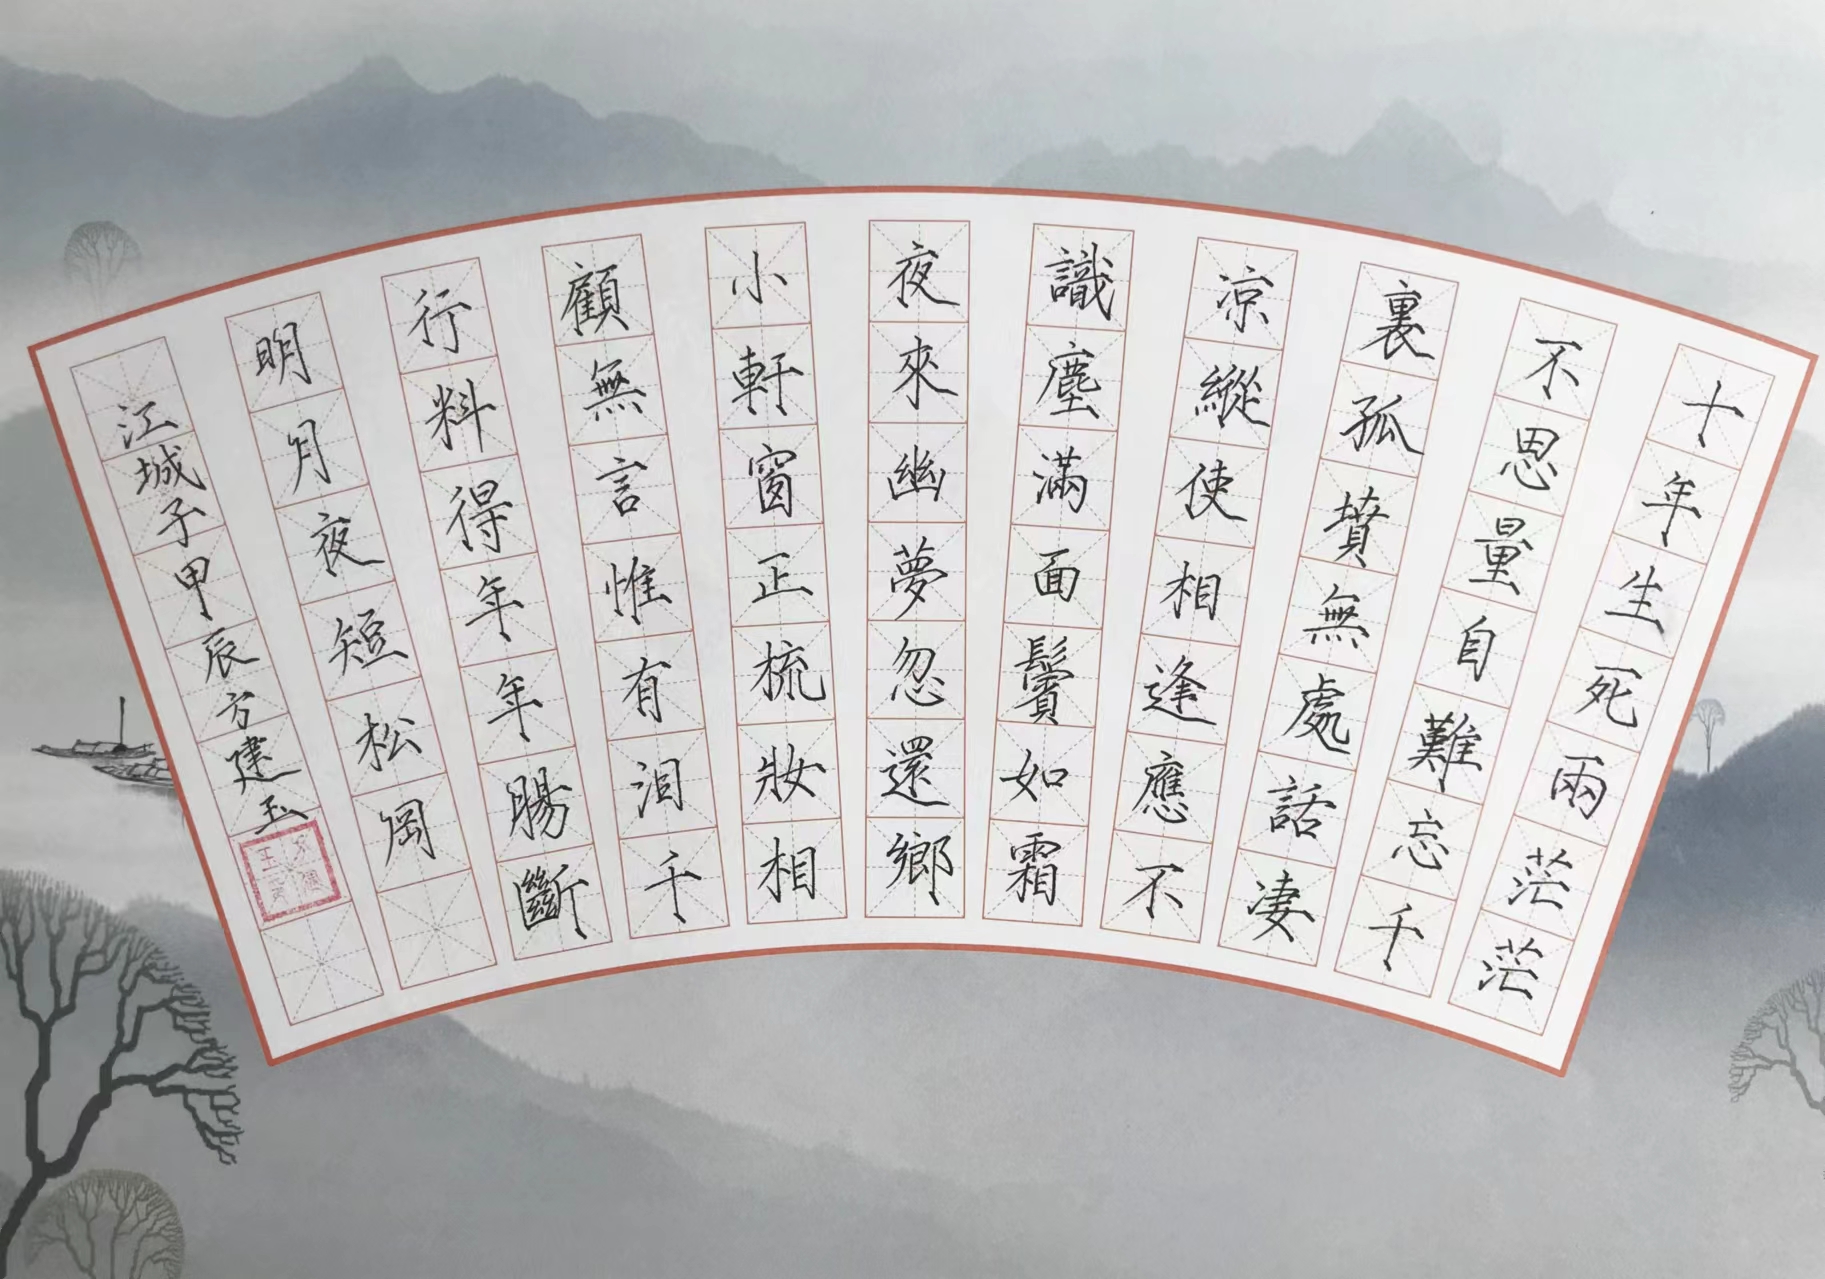 十年生死兩茫茫
不思量自難忘千
裏孤墳無處話淒
涼縱使相逢應不
識塵滿面鬢如霜
夜來幽夢忽還鄉
小軒窗正梳妝相
顧無言惟有泪千
行料得年年腸斷
明月夜短松岡
江城子甲辰方建玉